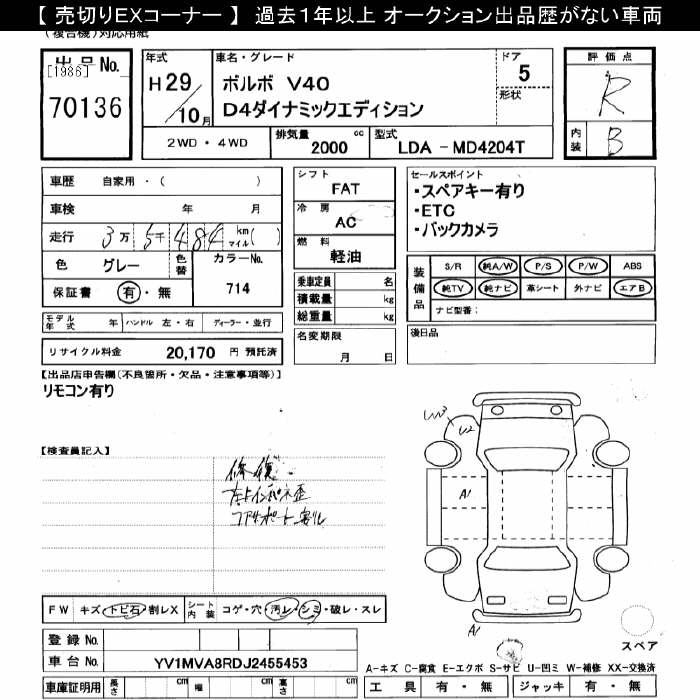 【 売切りEXコーナー 】 過去1年以上 オークション出品歴がない車両
(複合機)対応用紙
出品No.
[1986]
70136
年式
H29/10月
車名・グレード
ボルボ V40
D4ダイナミックエディション
ドア
5
形状
評価点
R
内装
B
2WD・4WD
排気量
2000 cc
型式
LDA - MD4204T
車歴 自家用・( )
車検 年 月
走行 3万5千484 km マイル( )
色 グレー
色替
カラーNo.
714
保証書 有・無
モデル年式 年
ハンドル 左・右
ディーラー・並行
リサイクル料金 20,170 円 預託済
シフト
FAT
冷房
AC
燃料
軽油
乗車定員 名
積載量 kg
総重量 kg
名変期限
月 日
セールスポイント
・スペアキー有り
・ETC
・バックカメラ
装備品
S/R 純A/W P/S P/W ABS
純TV 純ナビ 革シート 外ナビ エアB
ナビ型番:
後日品
【出品店申告欄(不良箇所・欠品・注意事項等)】
リモコン有り
【検査員記入】
修復
コアサポート
U2
A1
A1
FW キズ・トビ石・割レX
シート内装 コゲ・穴・汚レ・シミ・破レ・スレ
登録No.
車台No. YV1MVA8RDJ2455453
車庫証明用 長さ cm 幅 cm 高さ cm
スペア
A-キズ C-腐食 E-エクボ S-サビ U-凹ミ W-補修 XX-交換済
工具 有・無 ジャッキ 有・無